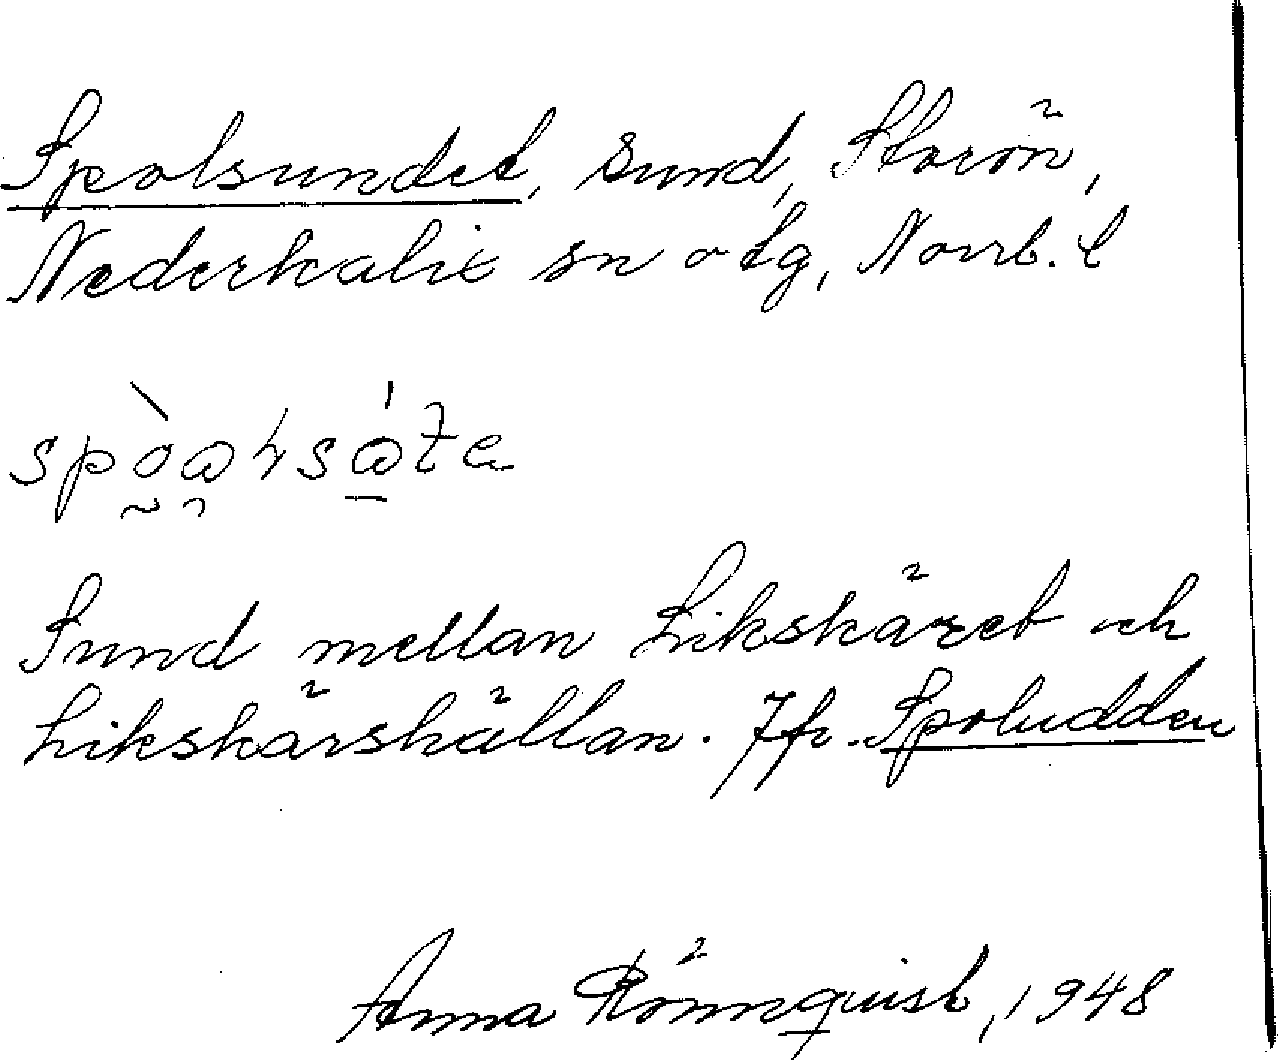 Spolsundet, sund, Storön,
Nederkalix sn o tg, Norrb. l
Sund mellan Likskäret och
Likskärshällan. Jfr. Spoludden
Anna Rönnquist, 1948